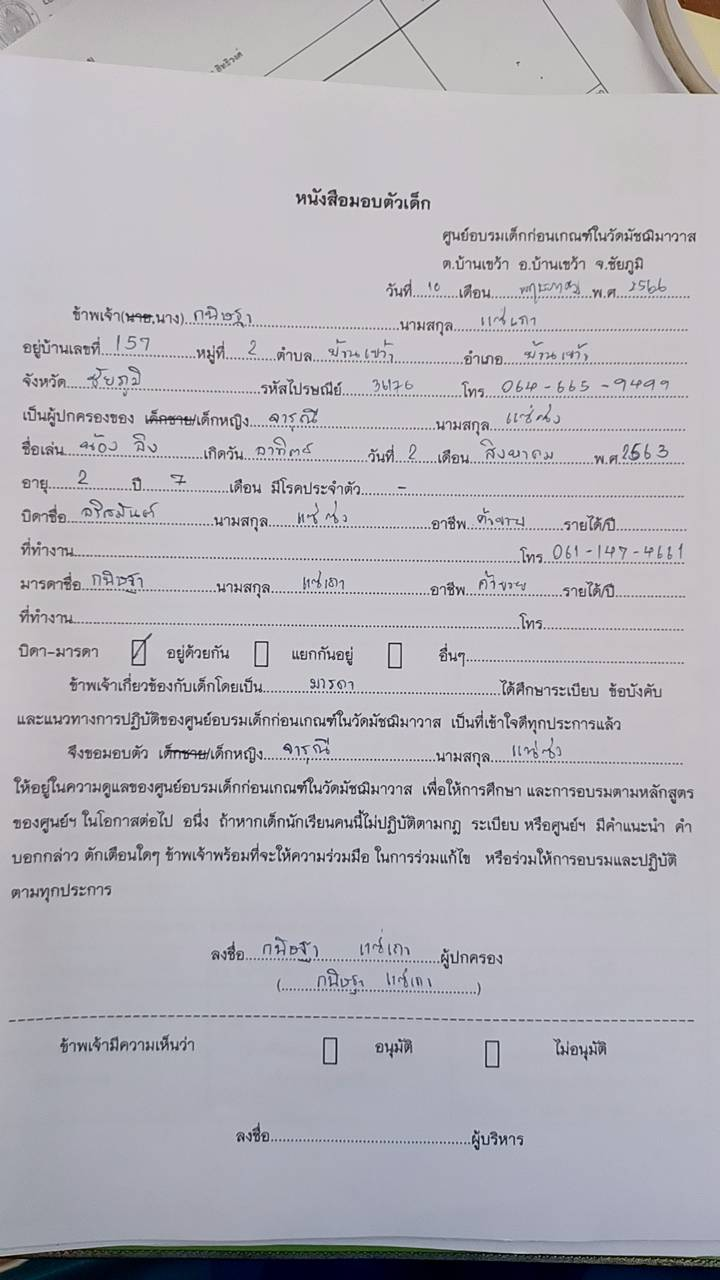 หนังสือมอบตัวเด็ก
ศูนย์อบรมเด็กก่อนเกณฑ์ในวัดมัชฌิมาวาส
ต.บ้านเขว้า อ.บ้านเขว้า จ.ชัยภูมิ
วันที่ 10 เดือน พฤษภาคม พ.ศ 2566
ข้าพเจ้า(นาย,นาง) กนิษฐา นามสกุล แซ่เถา
อยู่บ้านเลขที่ 157 หมู่ที่ 2 ตำบล บ้านเขว้า อำเภอ บ้านเขว้า
จังหวัด ชัยภูมิ รหัสไปรษณีย์ 36170 โทร 064-665-9499
เป็นผู้ปกครองของ เด็กชาย/เด็กหญิง จารุณี นามสกุล แซ่ซ่ง
ชื่อเล่น น้อง อิง เกิดวัน อาทิตย์ วันที่ 2 เดือน สิงหาคม พ.ศ 2563
อายุ 2 ปี 7 เดือน มีโรคประจำตัว -
บิดาชื่อ นามสกุล แซ่ซ่ง อาชีพ ค้าขาย รายได้/ปี
ที่ทำงาน โทร 061-147-4661
มารดาชื่อ กนิษฐา นามสกุล แซ่เถา อาชีพ ค้าขาย รายได้/ปี
ที่ทำงาน โทร
บิดา-มารดา อยู่ด้วยกัน แยกกันอยู่ อื่นๆ
ข้าพเจ้าเกี่ยวข้องกับเด็กโดยเป็น มารดา ได้ศึกษาระเบียบ ข้อบังคับ
และแนวทางการปฏิบัติของศูนย์อบรมเด็กก่อนเกณฑ์ในวัดมัชฌิมาวาส เป็นที่เข้าใจดีทุกประการแล้ว
จึงขอมอบตัว เด็กชาย/เด็กหญิง จารุณี นามสกุล แซ่ซ่ง
ให้อยู่ในความดูแลของศูนย์อบรมเด็กก่อนเกณฑ์ในวัดมัชฌิมาวาส เพื่อให้การศึกษา และการอบรมตามหลักสูตร
ของศูนย์ฯ ในโอกาสต่อไป อนึ่ง ถ้าหากเด็กนักเรียนคนนี้ไม่ปฏิบัติตามกฎ ระเบียบ หรือศูนย์ฯ มีคำแนะนำ คำ
บอกกล่าว ตักเตือนใดๆ ข้าพเจ้าพร้อมที่จะให้ความร่วมมือ ในการร่วมแก้ไข หรือร่วมให้การอบรมและปฏิบัติ
ตามทุกประการ
ลงชื่อ กนิษฐา แซ่เถา ผู้ปกครอง
( กนิษฐา แซ่เถา )
ข้าพเจ้ามีความเห็นว่า อนุมัติ ไม่อนุมัติ
ลงชื่อ ผู้บริหาร